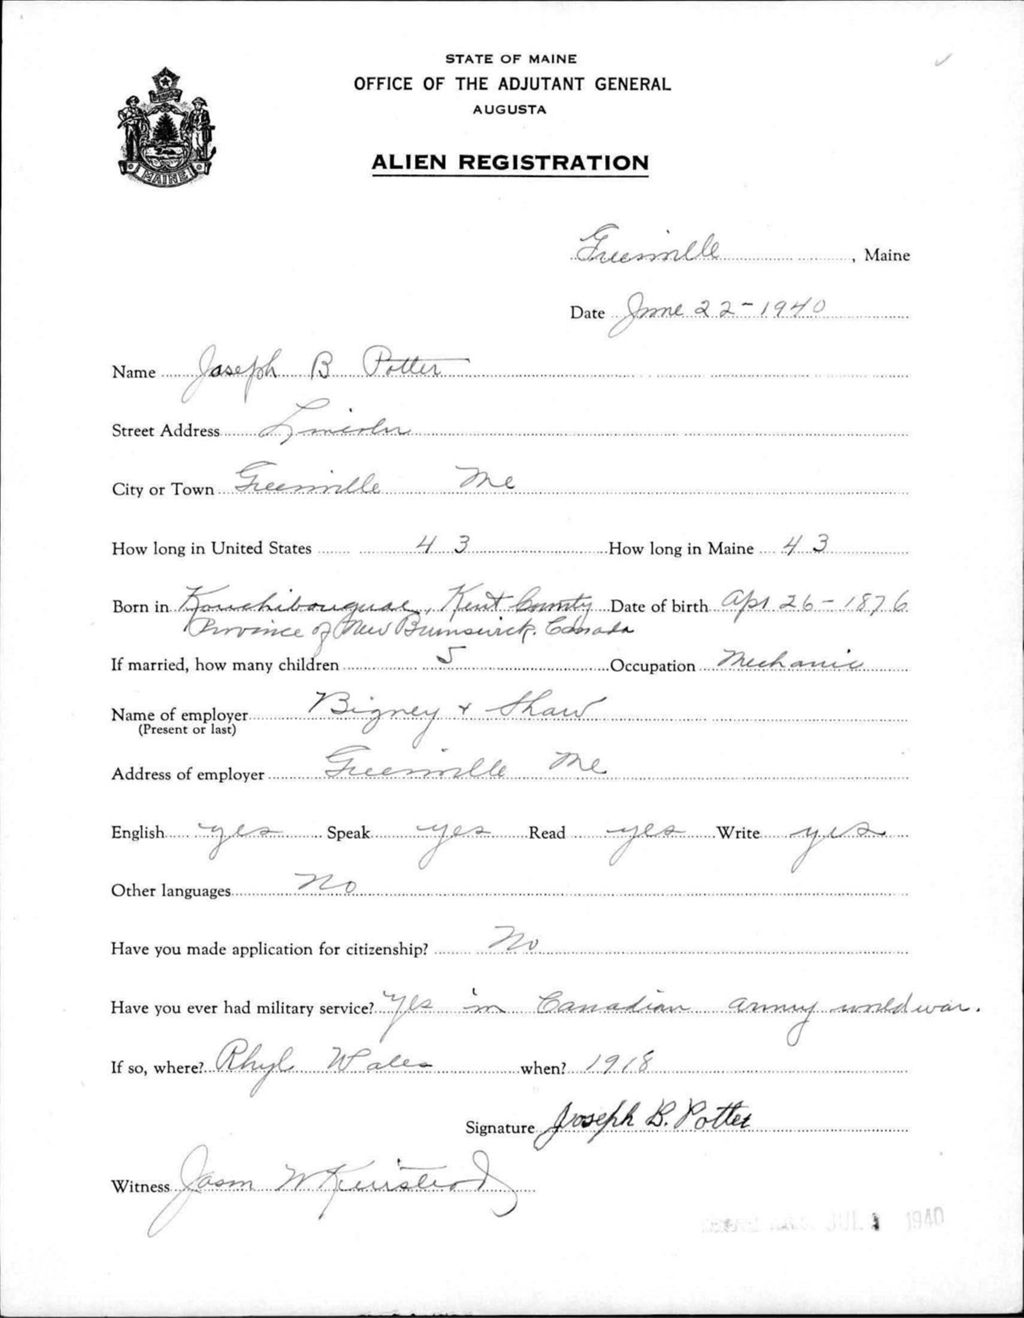 STATE OF MAINE
OFFICE OF THE ADJUTANT GENERAL
AUGUSTA
ALIEN REGISTRATION
MAINE
Greenville, Maine
Date June 22-1940
Name Joseph B Potter
Street Address Lincoln
City or Town Greenville Me
How long in United States 43 How long in Maine 43
Born in Kouchibouguac, Kent County Date of birth Apr 26-1876
Province of New Brunswick. Canada
If married, how many children 5 Occupation Mechanic
Name of employer Bigney + Shaw
(Present or last)
Address of employer Greenville Me
English yes Speak yes Read yes Write yes
Other languages No
Have you made application for citizenship? No
Have you ever had military service? Yes in Canadian army world war.
If so, where? Rhyl Wales when? 1918
Signature Joseph B. Potter
Witness Jason W
JUL 1940